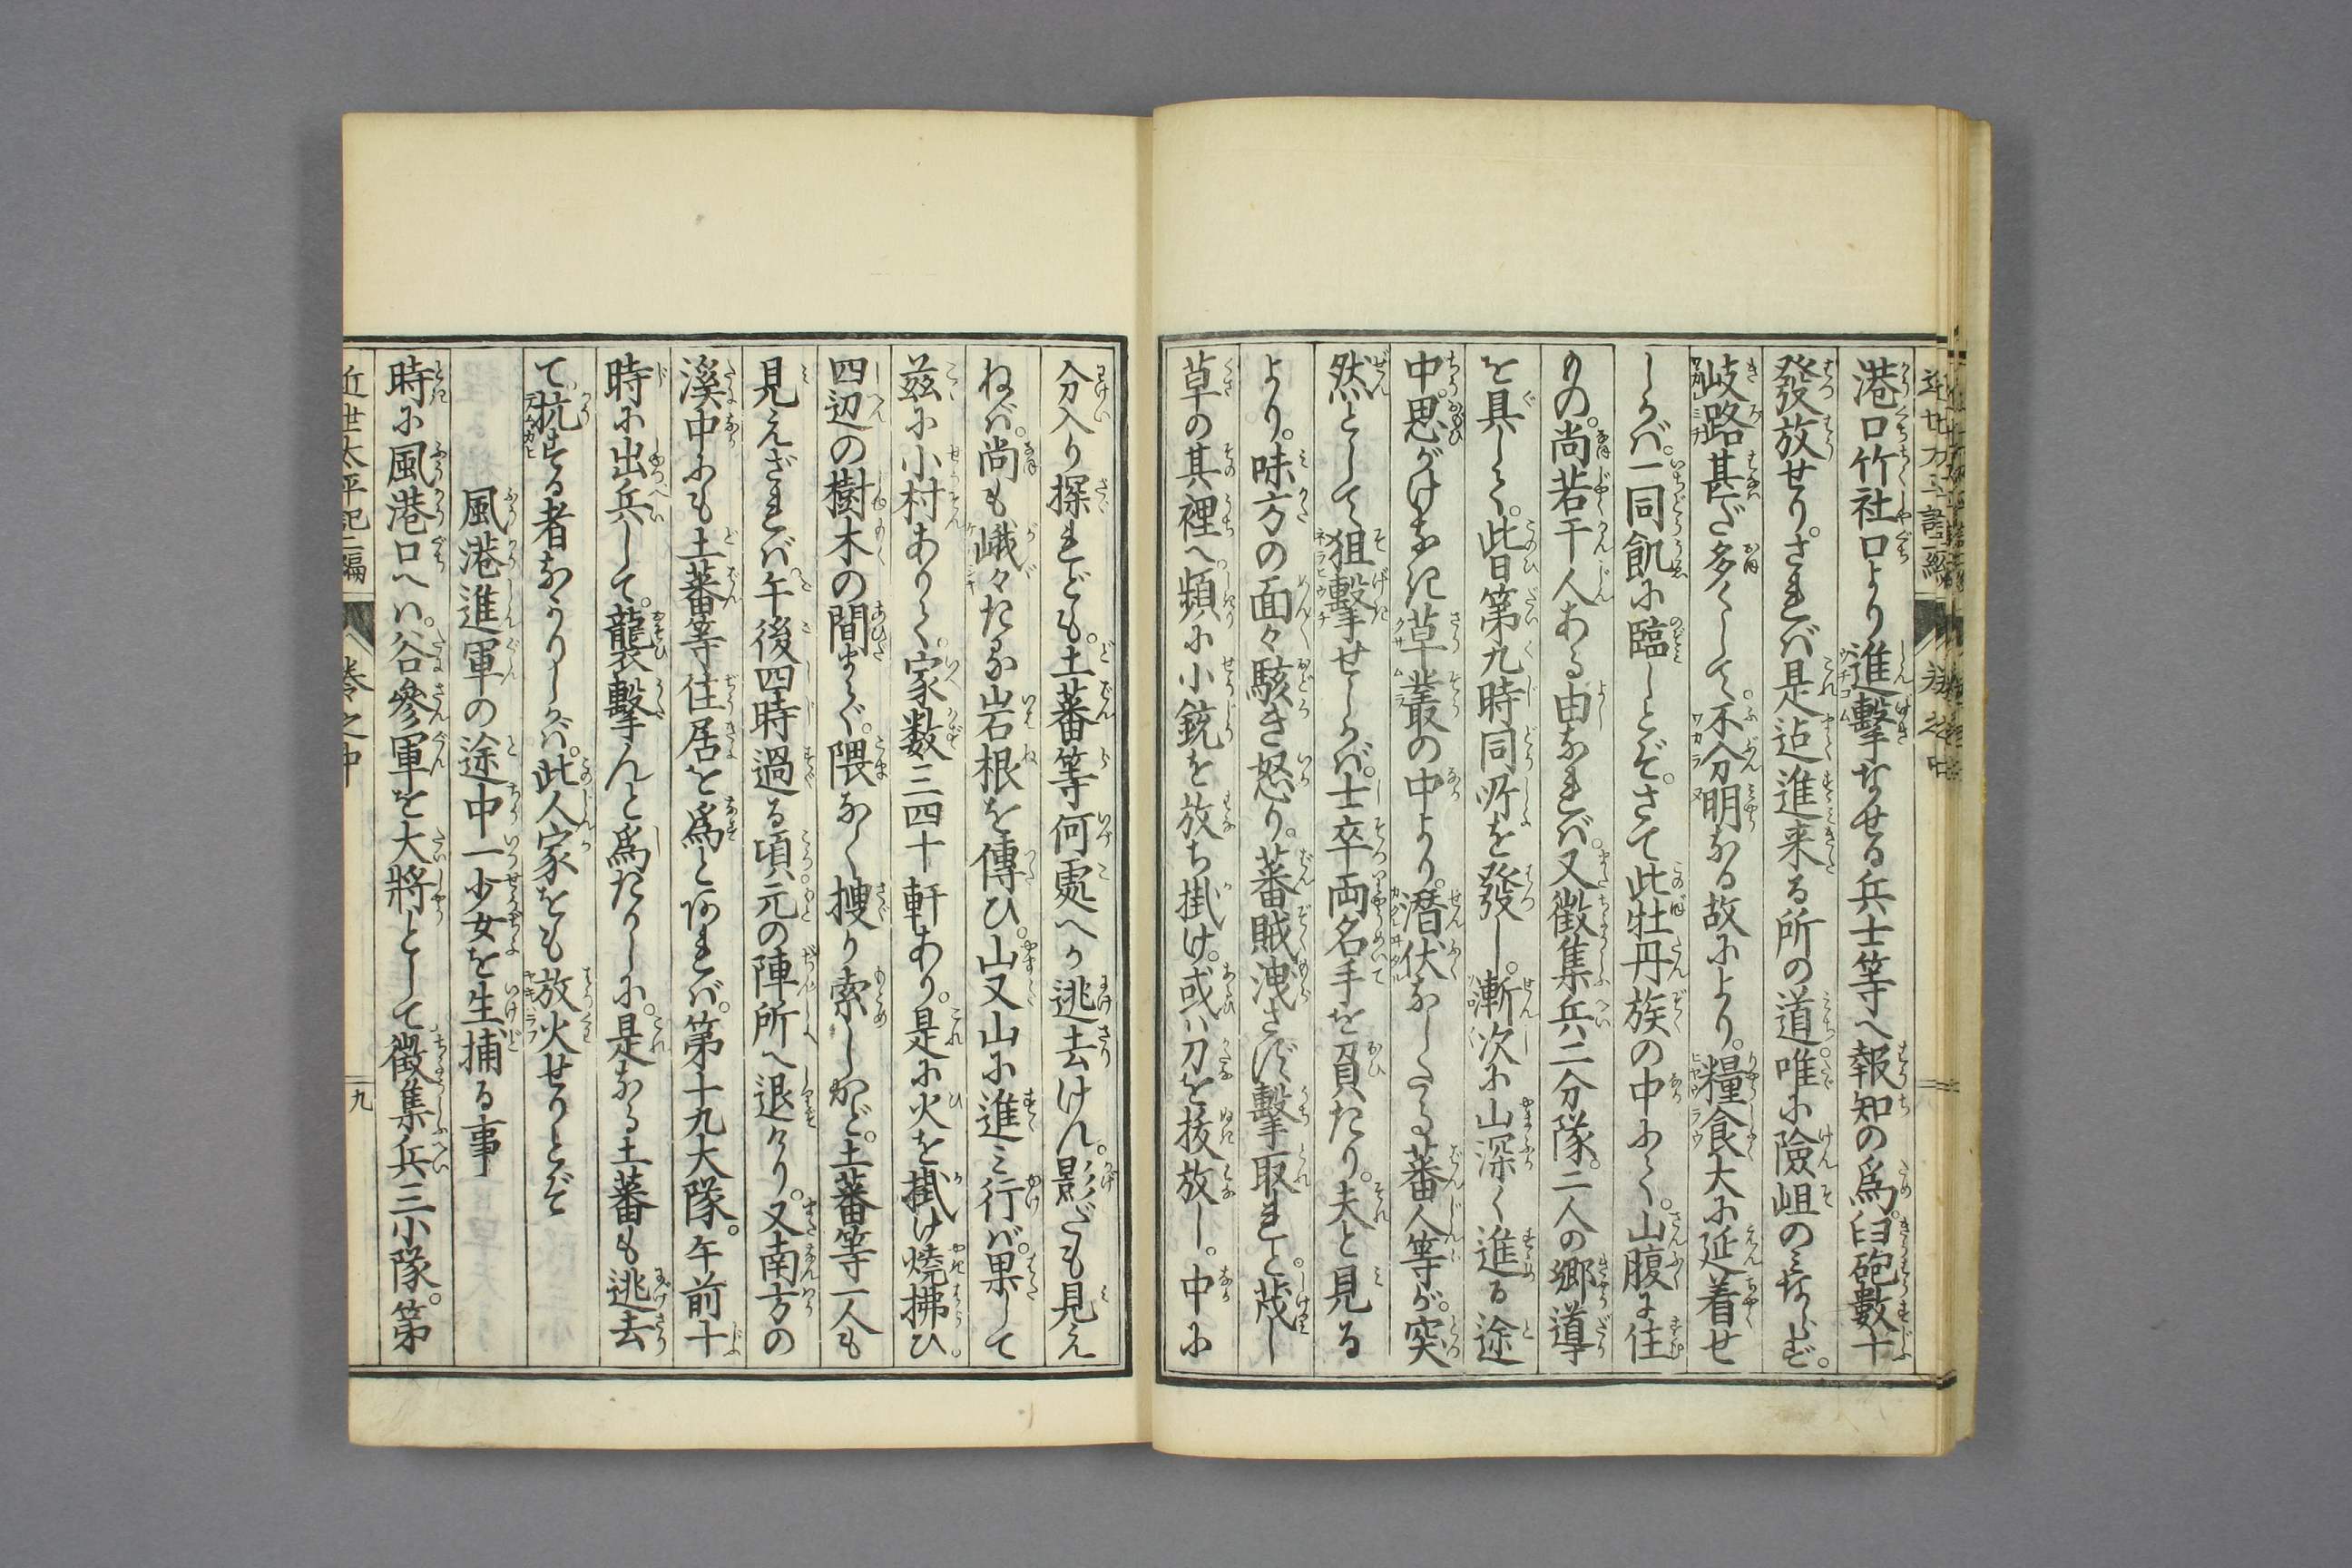 港口竹社口より進撃なせる兵士等へ報知の爲。臼砲數十
發放せり。されバ是迠進来る所の道。唯に險岨のミならず。
岐路甚だ多くして。不分明なる故により。糧食大に延着せ
しかバ。一同飢に臨しとぞ。さて此牡丹族の中にて。山腹に住
もの。尚若干人ある由なれバ。又徴集兵二分隊。二人の郷導
を具して。此日第九時同所を發し。漸次に山深く進る途
中。思がけなき草叢の中より。潜伏なしたる蕃人等が。突
然として狙撃せしかバ。士卒両名手を負たり。夫と見る
より。味方の面々駭き怒り。蕃賊洩さず撃取れと。茂し
草の其裡へ。頻に小銃を放ち掛け。或ハ刀を抜放し。中に
分入り探れども。土蕃等何處へか逃去けん。影だも見え
ねバ。尚も峨々たる岩根を傳ひ。山又山に進ミ行バ。果して
茲に小村ありて。家数三四十軒あり。是に火を掛け燒拂ひ。
四辺の樹木の間まで。隈なく捜り索しかど。土蕃等一人も
見えざれバ。午後四時過る頃。元の陣所へ退けり。又南方の
溪中にも土蕃等住居を爲とあれバ。第十九大隊。午前十
時に出兵して。襲撃んと爲たりしに。是なる土蕃も逃去
て。抗する者なかりしかバ。此人家をも放火せりとぞ
風港進軍の途中一少女を生捕る事
時に風港口へハ。谷參軍を大將として徴集兵三小隊。第
近世太平記二編 巻之中 九